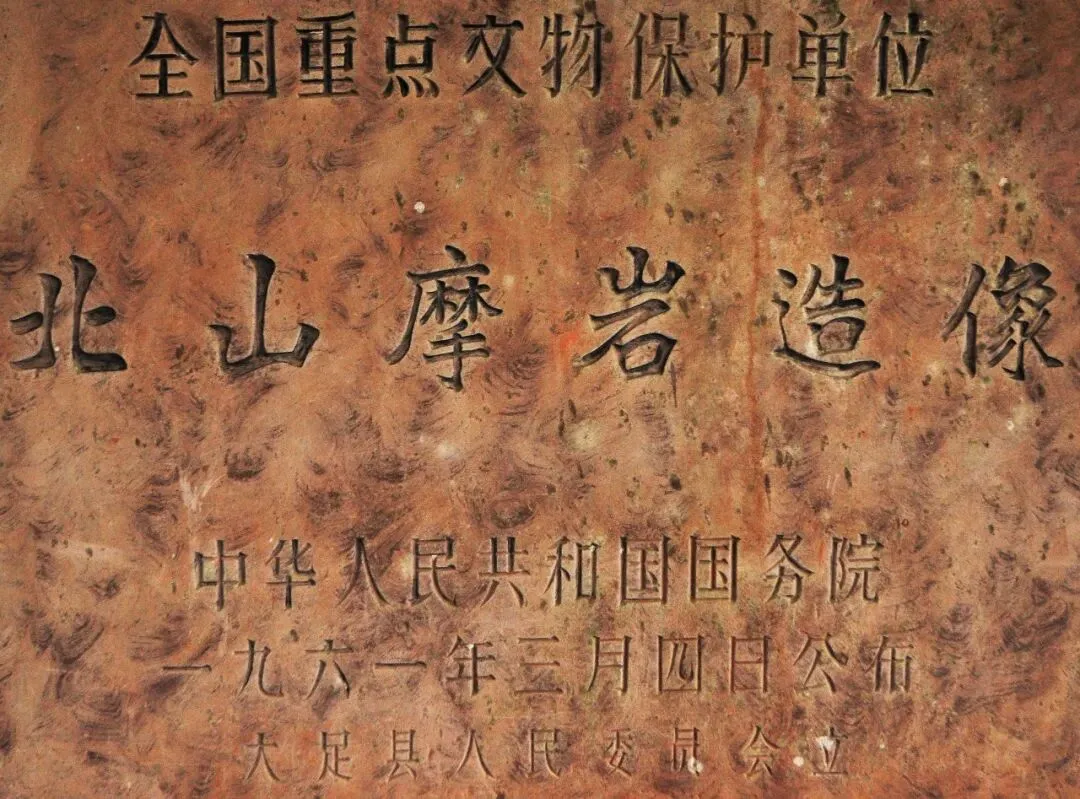 全国重点文物保护单位
北山摩岩造像
中华人民共和国国务院
一九六一年三月四日公布
大足县人民委员会立